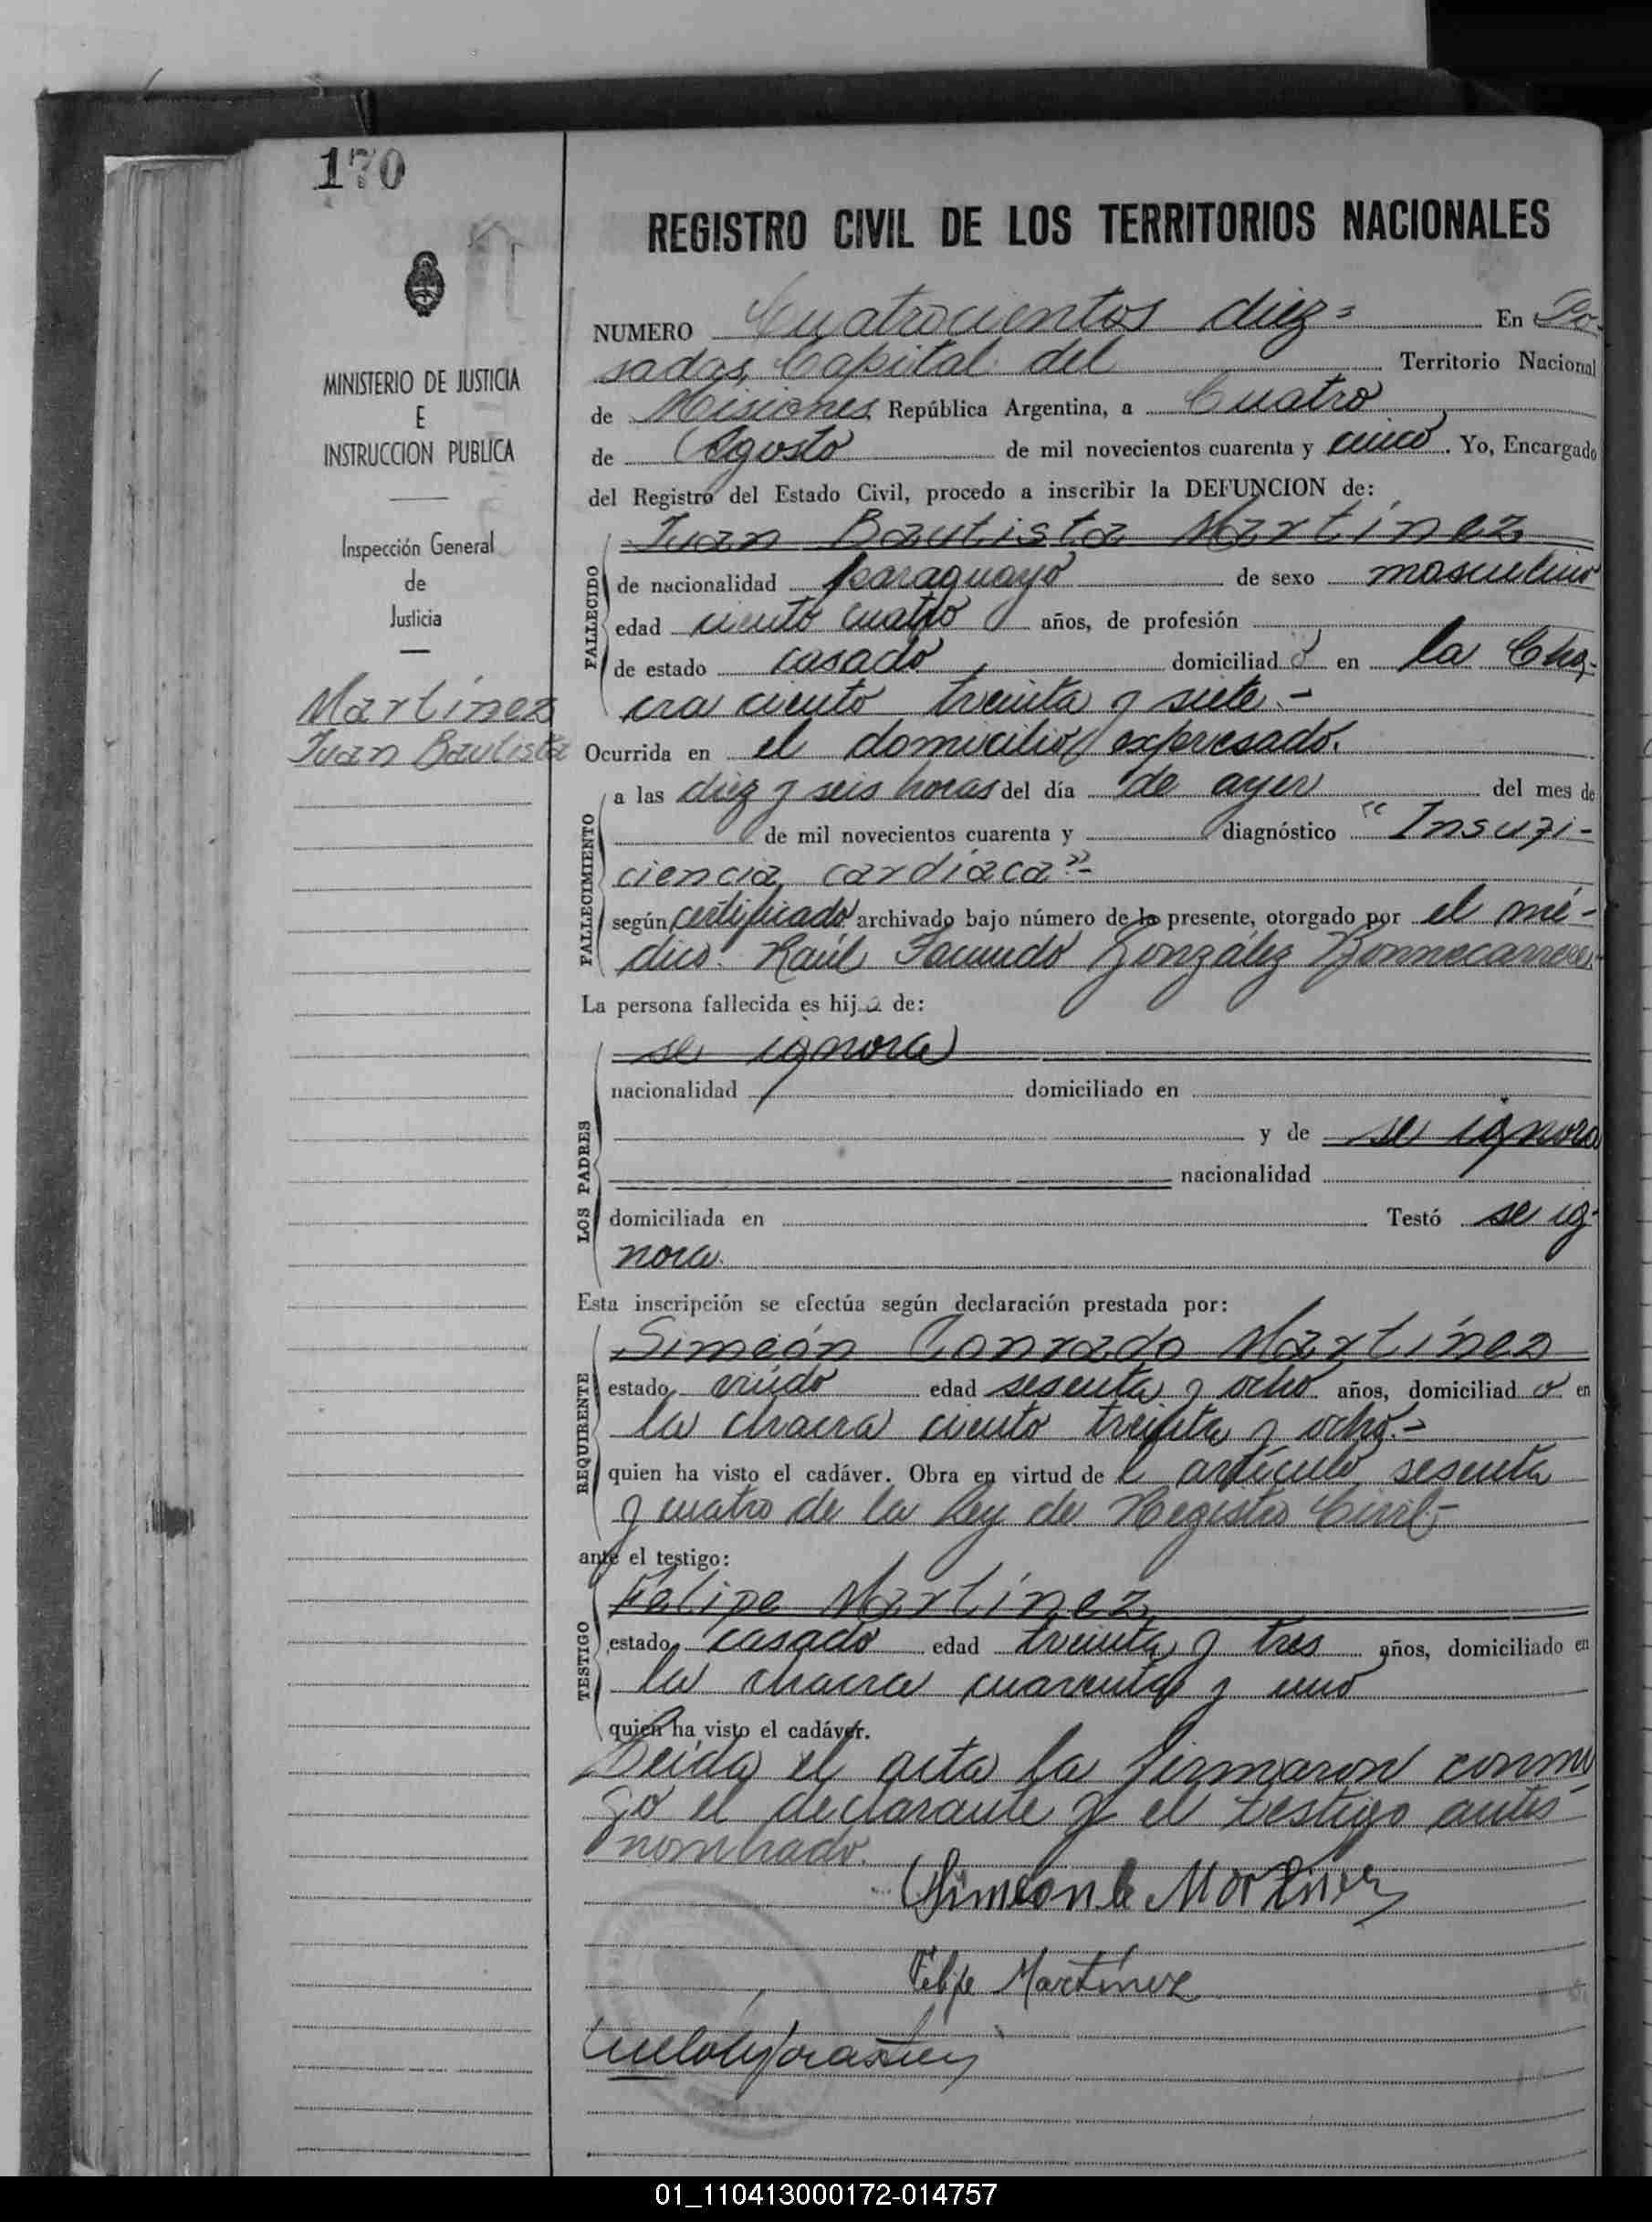 170
REGISTRO CIVIL DE LOS TERRITORIOS NACIONALES
MINISTERIO DE JUSTICIA
E
INSTRUCCION PUBLICA
Inspección General
de
Justicia
Martínez
Juan Bautista
NUMERO Cuatrocientos diez= En Po-
sadas, Capital del Territorio Nacional
de Misiones, República Argentina, a Cuatro
de Agosto de mil novecientos cuarenta y cinco. Yo, Encargado
del Registro del Estado Civil, procedo a inscribir la DEFUNCION de:
FALLECIDO
Juan Bautista Martínez
de nacionalidad paraguayo de sexo masculino
edad ciento cuatro años, de profesión
de estado casado, domiciliado en la Cha-
cra ciento treinta y siete.-
Ocurrida en el domicilio expresado.
FALLECIMIENTO
a las diez y seis horas del día de ayer del mes de
de mil novecientos cuarenta y diagnóstico "Insufi-
ciencia cardíaca"-
según certificado archivado bajo número de la presente, otorgado por el mé-
dico: Raúl Facundo González Bonnecarrere.
La persona fallecida es hijo de:
LOS PADRES
se ignora
nacionalidad domiciliado en
y de se ignora
nacionalidad
domiciliada en Testó se ig-
nora.
Esta inscripción se efectúa según declaración prestada por:
REQUIRENTE
Simeón Conrado Martínez
estado viudo edad sesenta y ocho años, domiciliado en
la chacra ciento treinta y ocho.-
quien ha visto el cadáver. Obra en virtud del artículo sesenta
y cuatro de la Ley de Registro Civil-
ante el testigo:
TESTIGO
Felipe Martínez
estado casado edad treinta y tres años, domiciliado en
la chacra cuarenta y uno
quien ha visto el cadáver.
Leída el acta la firmaron conmi
go el declarante y el testigo antes
nombrado.
Simeon C Martinez
Felipe Martínez
01_110413000172-014757